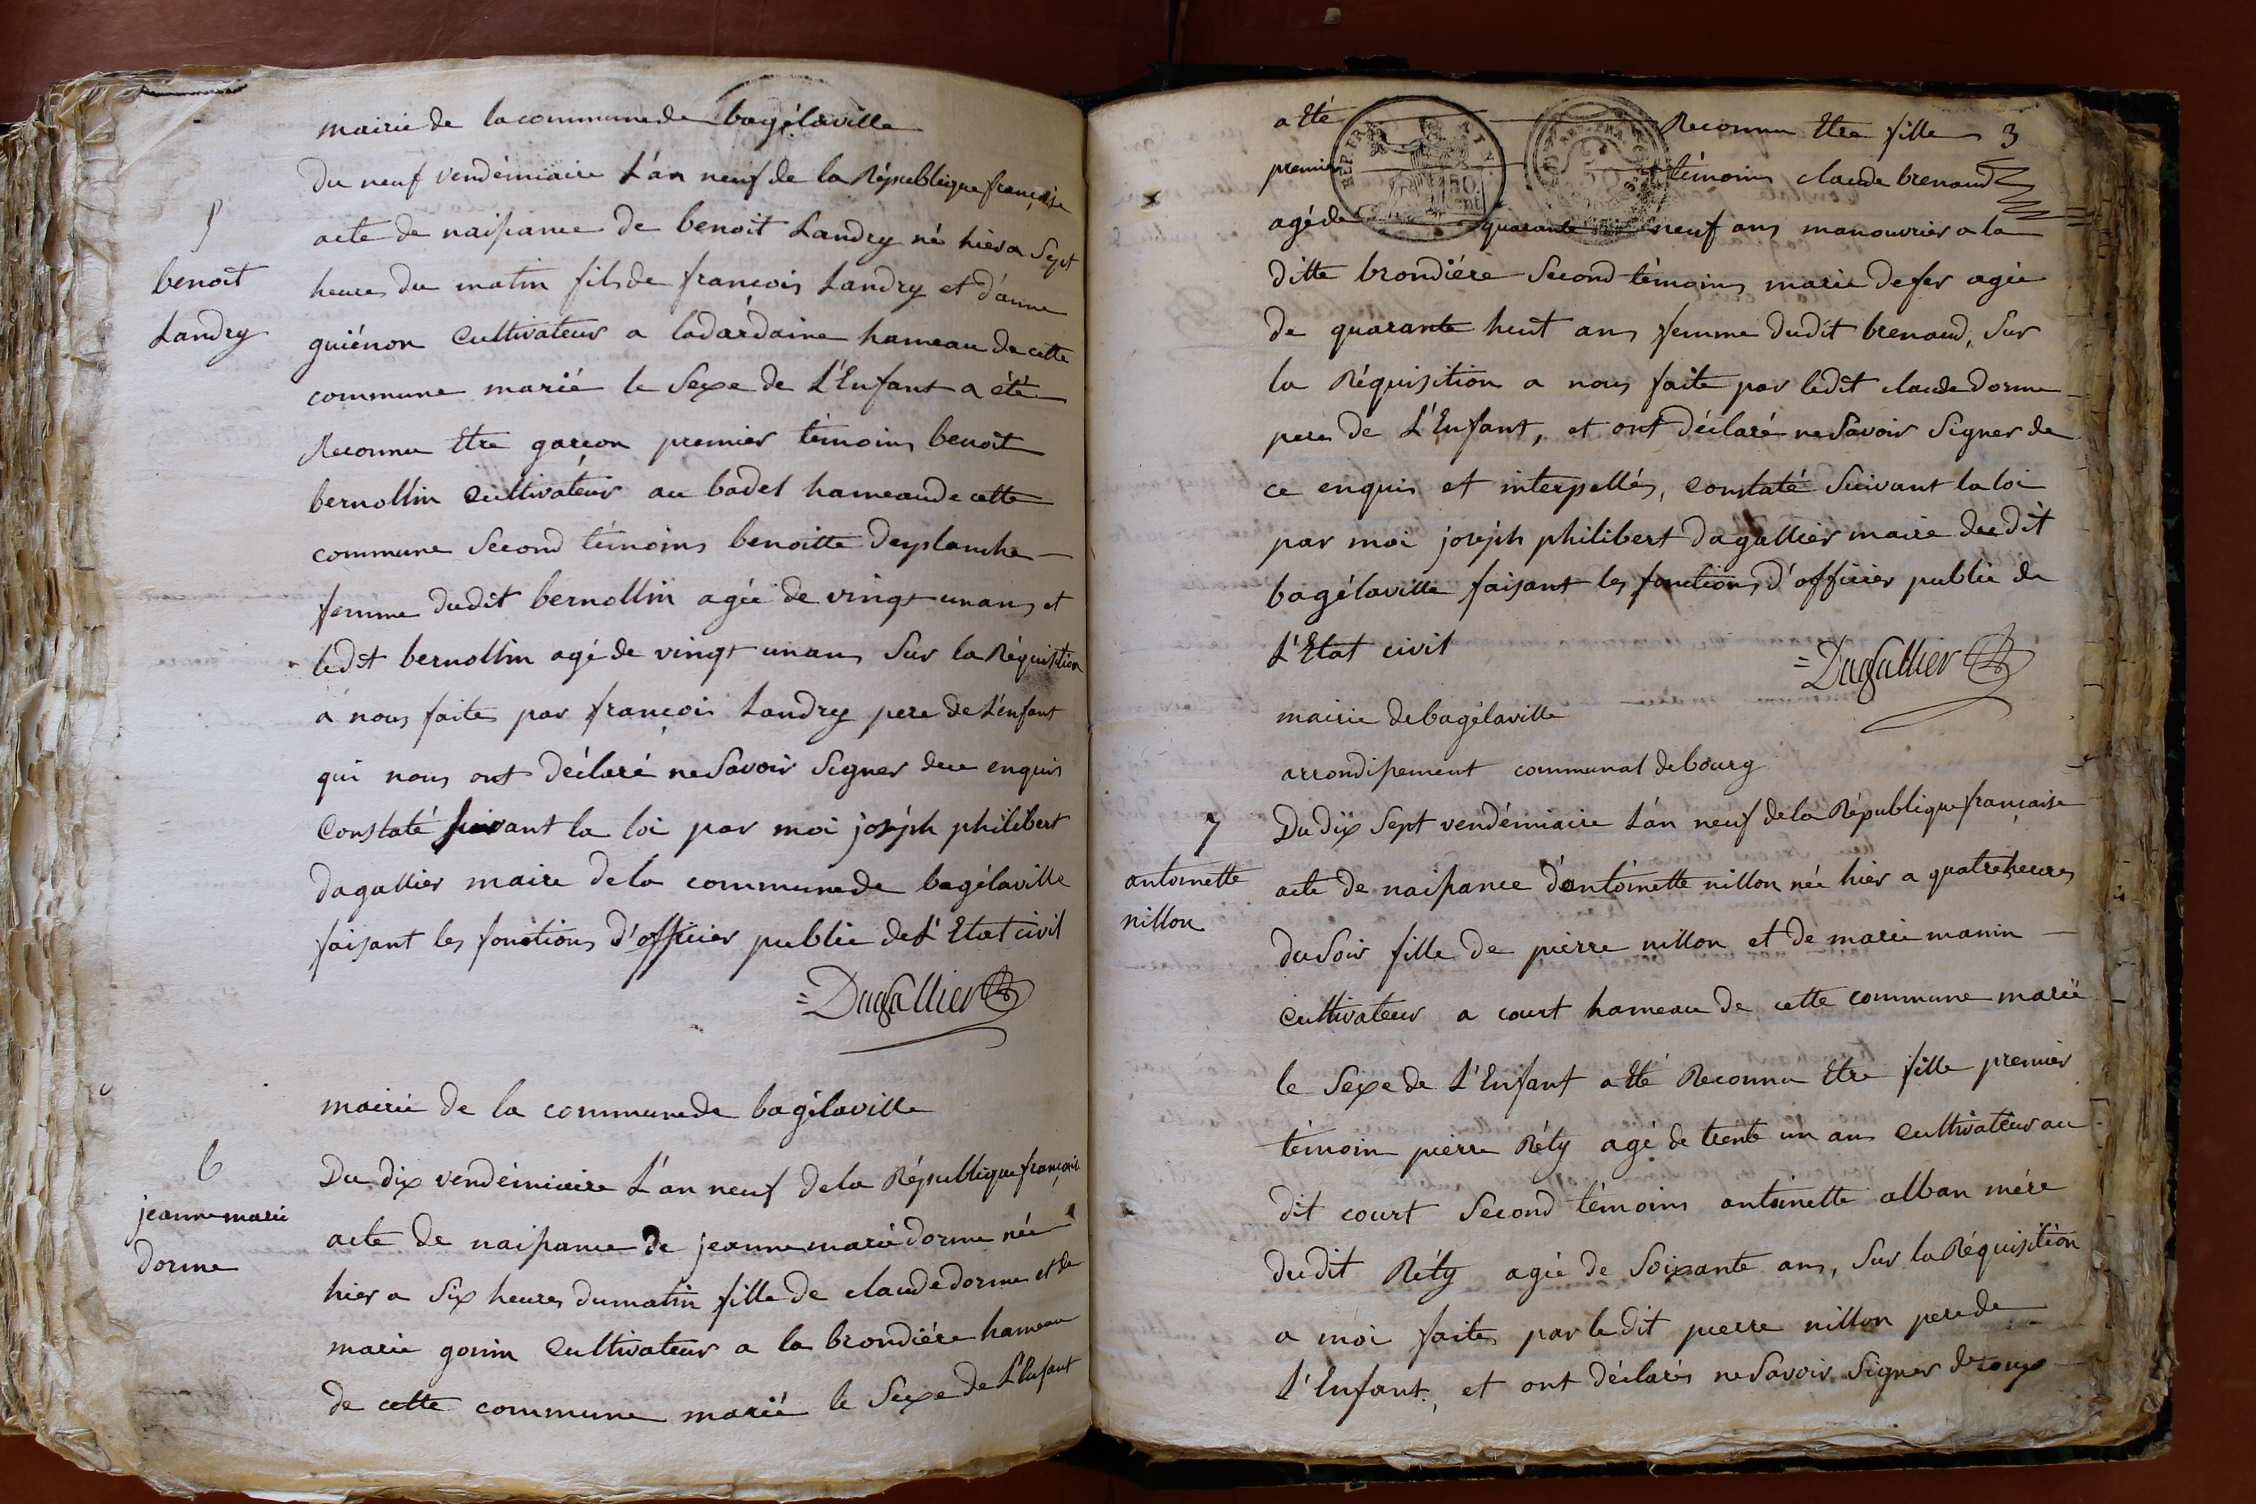 mairie de la commune de bagélaville
du neuf vendémiaire L'an neuf de la République française
5
acte de naissance de benoit Landry né hier a Sept
benoit
heures du matin fils de françois Landry et d'anne
Landry
guiénon Cultivateur a ladardaine hameau de cette
commune marié le Sexe de L'Enfant a été
Reconnu Etre garçon premier témoins benoit
bernollin Cultivateur au badel hameau de cette
commune Second témoins benoitte desplanche
femme dudit bernollin agée de vingt un ans et
ledit bernollin agé de vingt un ans Sur la Réquisition
a nous faites par françois Landry pere de L'enfant
qui nous ont déclaré ne Savoir Signer de ce enquis
Constaté Suivant la loi par moi joséph philibert
dagallier maire de la commune de bagélaville
faisant les fonctions d'officier public de L'Etat civil
=Dagallier
mairie de la commune de bagélaville
6
Du dix vendémiaire L'an neuf de la République française
jeanne marie
acte de naissance de jeanne marie dorme née
dorme
hier a Six heures du matin fille de claude dorme et de
marie gonin Cultivateur a la brondiére hameau
de cette commune marié le Sexe de L'Enfant
a Eté Reconnu Etre fille 3
premier témoins claude brenaud
agé de quarante neuf ans manouvrier a la
ditte brondiére Second témoins marie defer agée
de quarante huit ans femme dudit brenaud, Sur
la Réquisition a nous faite par ledit claude dorme
pere de L'Enfant, et ont déclaré ne Savoir Signer de
ce enquis et interpellés, Constaté Suivant la loi
par moi joséph philibert dagallier maire du dit
bagélaville faisant les fonctions d'officier public de
L'Etat civil
=Dagallier
mairie de bagélaville
arrondissement communal de bourg
7
Du dix Sept vendémiaire L'an neuf de la République française
antoinette
acte de naissance d'antoinette nillon née hier a quatre heures
nillon
du Soir fille de pierre nillon et de marie manin
Cultivateur a court hameau de cette commune marié
le Sexe de L'Enfant a Eté Reconnu Etre fille premier
témoin pierre Réty agé de trente un ans Cultivateur au
dit court Second témoins antoinette alban mére
dudit Réty agée de Soixante ans, Sur la Réquisition
a moi faites par le dit pierre nillon pere de
L'Enfant, et ont déclarés ne Savoir Signer de